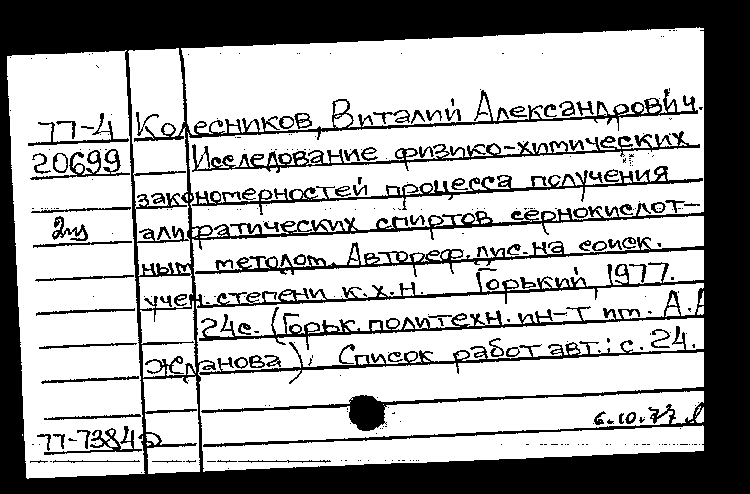 77-4 Колесников, Виталий Александрович.
20699 Исследование физико-химических
закономерностей процесса получения
2 алифатических спиртов сернокислот-
ным методом. Автореф. дис. на соиск.
учен. степени к.х.н. Горький, 1977.
24с. (Горьк. политехн. ин-т им. А.А
Жданова). Список работ авт.: с. 24.
6.10.77
77-7384